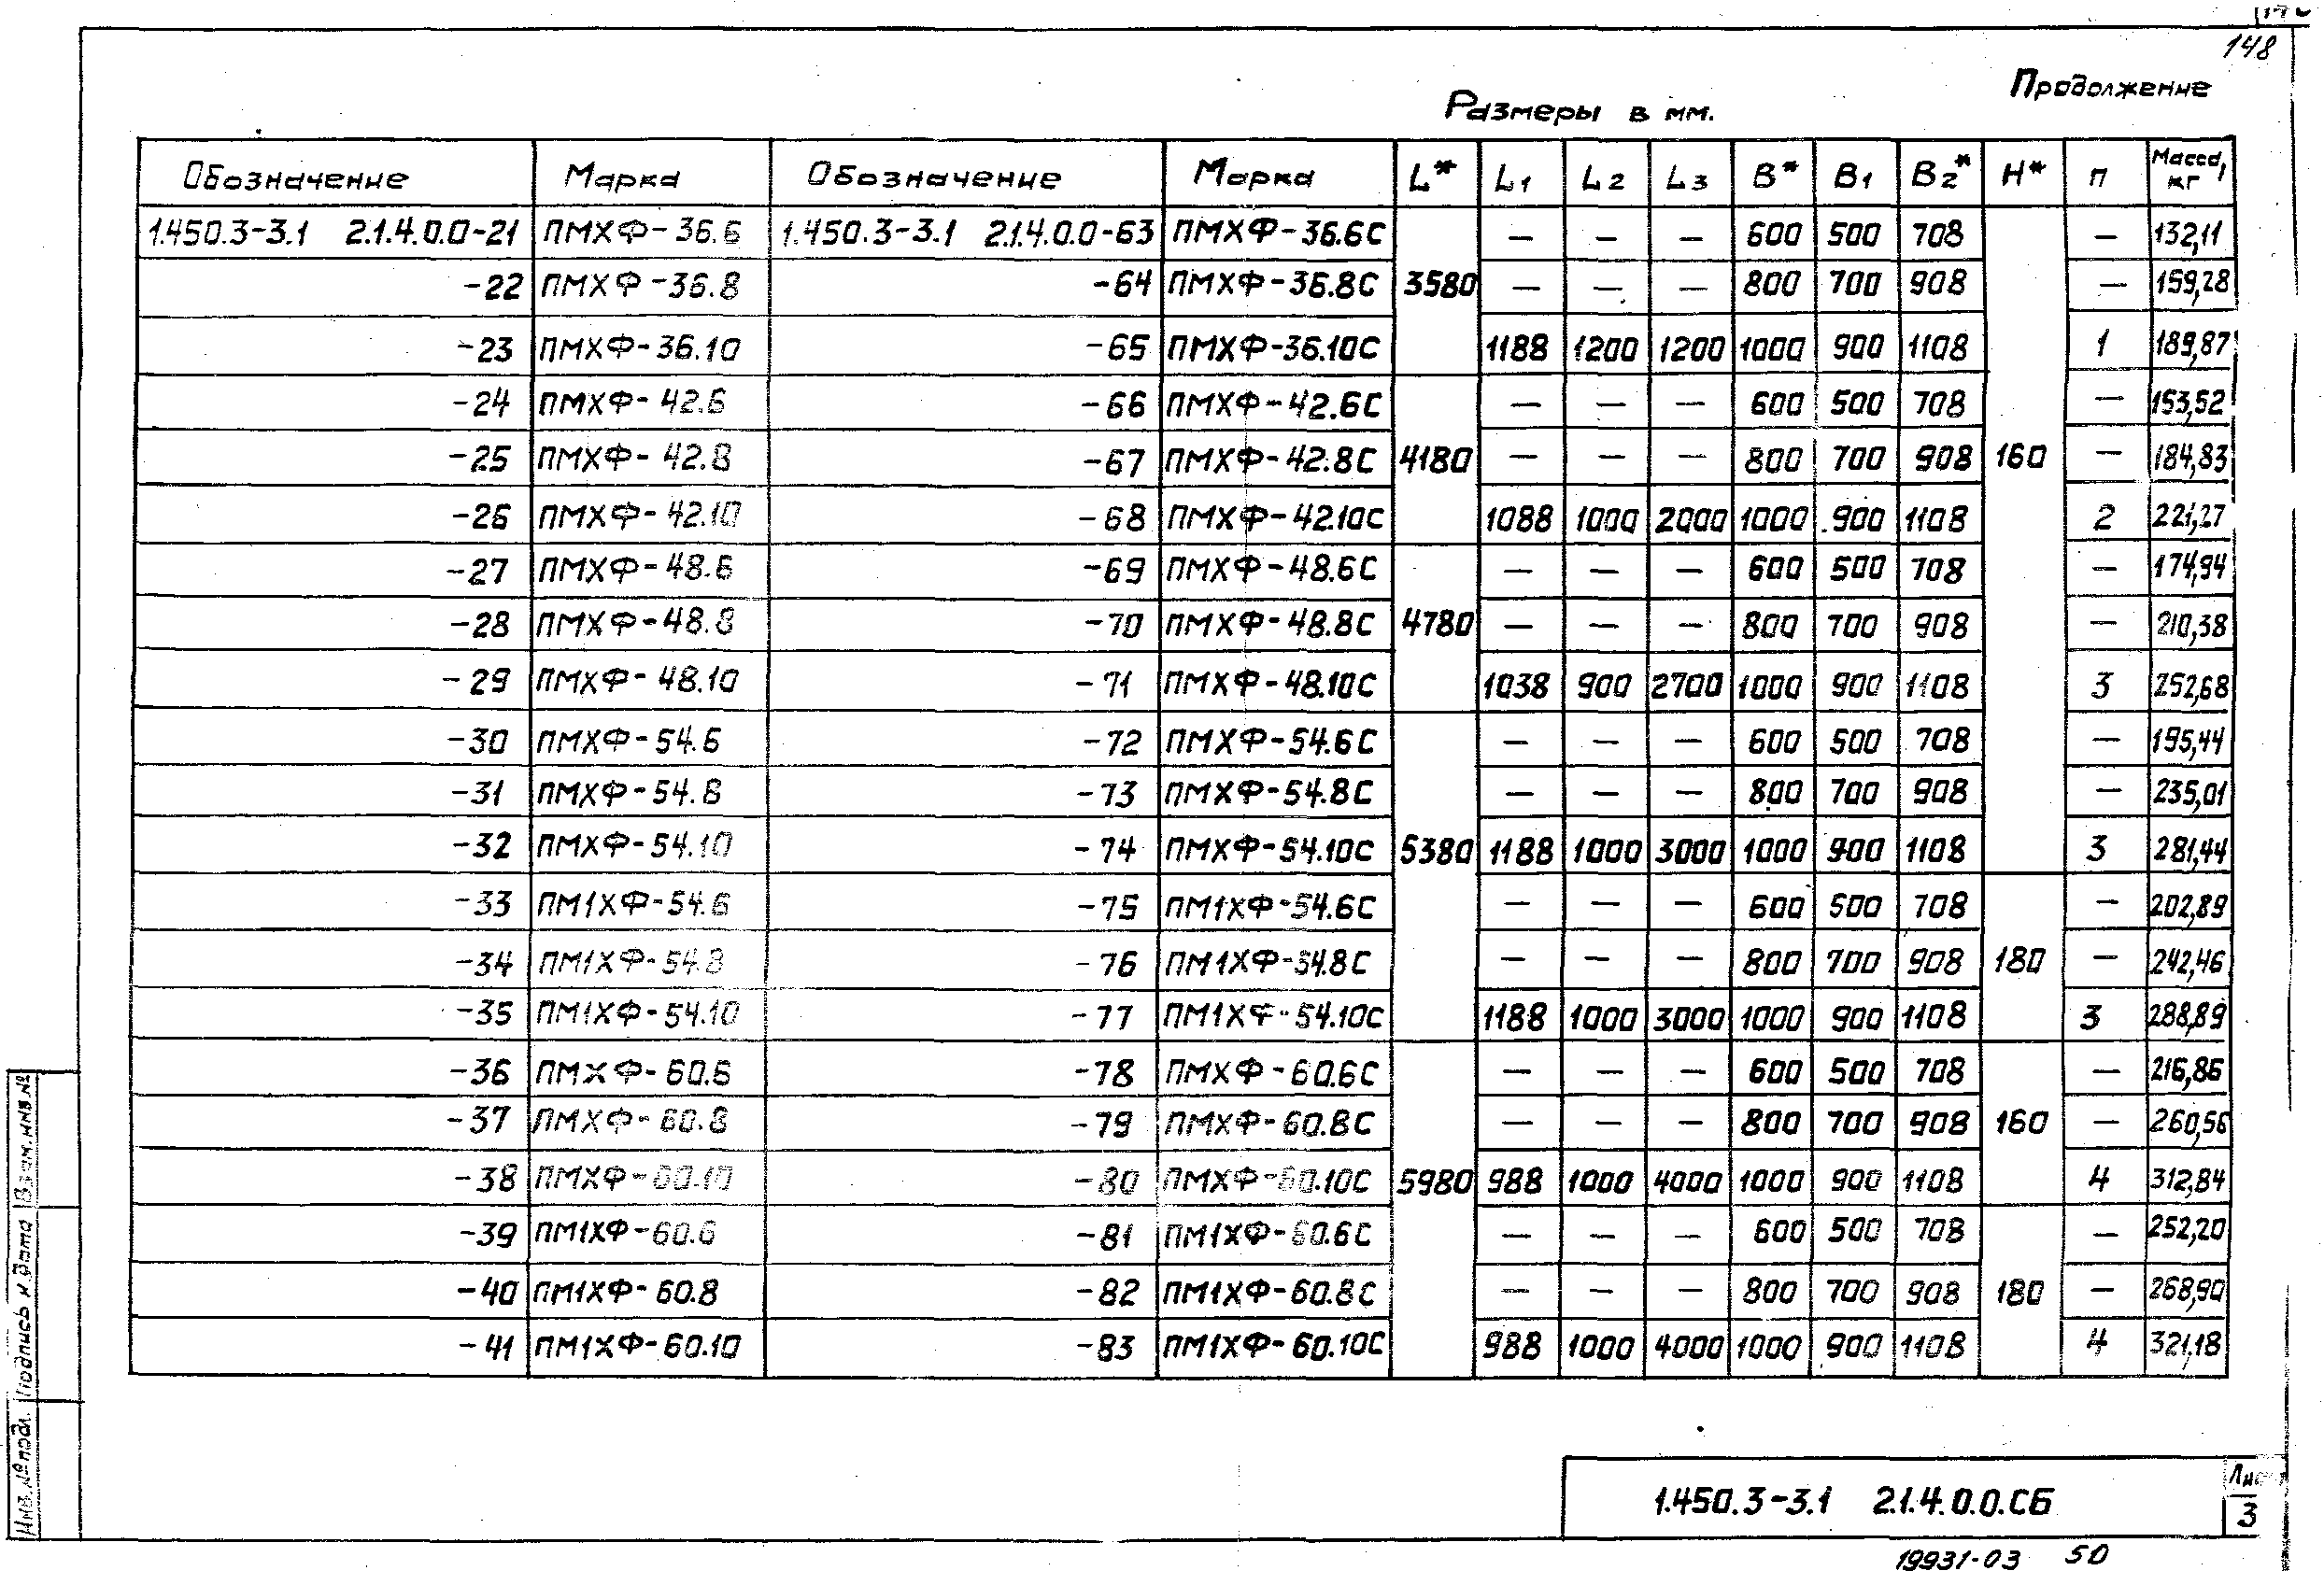 148
Продолжение
Размеры в мм.
Обозначение Марка Обозначение Марка L* L1 L2 L3 B* B1 B2* H* п Масса, кг
1.450.3-3.1 2.1.4.0.0-21 ПМХФ-36.6 1.450.3-3.1 2.1.4.0.0-63 ПМХФ-36.6С — — — 600 500 708 — 132,11
-22 ПМХФ-36.8 -64 ПМХФ-36.8С 3580 — — — 800 700 908 — 159,28
-23 ПМХФ-36.10 -65 ПМХФ-36.10С 1188 1200 1200 1000 900 1108 1 189,87
-24 ПМХФ-42.6 -66 ПМХФ-42.6С — — — 600 500 708 — 153,52
-25 ПМХФ-42.8 -67 ПМХФ-42.8С 4180 — — — 800 700 908 160 — 184,83
-26 ПМХФ-42.10 -68 ПМХФ-42.10С 1088 1000 2000 1000 900 1108 2 221,27
-27 ПМХФ-48.6 -69 ПМХФ-48.6С — — — 600 500 708 — 174,94
-28 ПМХФ-48.8 -70 ПМХФ-48.8С 4780 — — — 800 700 908 — 210,38
-29 ПМХФ-48.10 -71 ПМХФ-48.10С 1038 900 2700 1000 900 1108 3 252,68
-30 ПМХФ-54.6 -72 ПМХФ-54.6С — — — 600 500 708 — 195,44
-31 ПМХФ-54.8 -73 ПМХФ-54.8С — — — 800 700 908 — 235,01
-32 ПМХФ-54.10 -74 ПМХФ-54.10С 5380 1188 1000 3000 1000 900 1108 3 281,44
-33 ПМ1ХФ-54.6 -75 ПМ1ХФ-54.6С — — — 600 500 708 — 202,89
-34 ПМ1ХФ-54.8 -76 ПМ1ХФ-54.8С — — — 800 700 908 180 — 242,46
-35 ПМ1ХФ-54.10 -77 ПМ1ХФ-54.10С 1188 1000 3000 1000 900 1108 3 288,89
-36 ПМХФ-60.6 -78 ПМХФ-60.6С — — — 600 500 708 — 216,86
-37 ПМХФ-60.8 -79 ПМХФ-60.8С — — — 800 700 908 160 — 260,56
-38 ПМХФ-60.10 -80 ПМХФ-60.10С 5980 988 1000 4000 1000 900 1108 4 312,84
-39 ПМ1ХФ-60.6 -81 ПМ1ХФ-60.6С — — — 600 500 708 — 252,20
-40 ПМ1ХФ-60.8 -82 ПМ1ХФ-60.8С — — — 800 700 908 180 — 268,90
-41 ПМ1ХФ-60.10 -83 ПМ1ХФ-60.10С 988 1000 4000 1000 900 1108 4 321,18
Инв.№ подл. Подпись и дата Взам.инв.№
1.450.3-3.1 2.1.4.0.0.СБ
Лист
3
19931-03 50